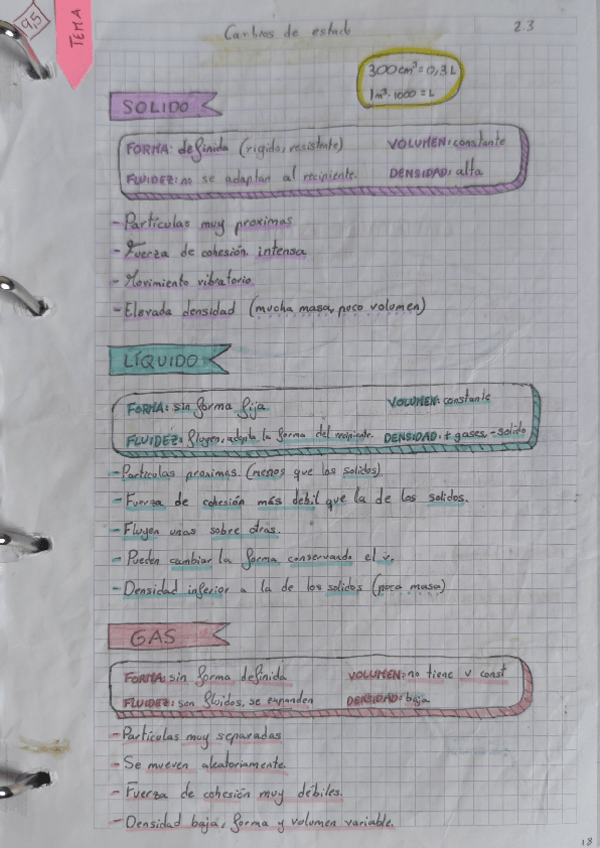 9,5
TEMA
Cambios de estado
2.3
300 cm³ = 0,3 L
1m³·1000 = L
SOLIDO
FORMA: definida (rigido, resistente) VOLUMEN: constante
FLUIDEZ: no se adaptan al recipiente. DENSIDAD: alta
- Partículas muy proximas
- Fuerza de cohesión intensa
- Movimiento vibratorio
- Elevada densidad (mucha masa, poco volumen)
LÍQUIDO
FORMA: sin forma fija VOLUMEN: constante
FLUIDEZ: fluyen, adapta la forma del recipiente. DENSIDAD: + gases, - solido
- Particulas proximas. (menos que los solidos)
- Fuerza de cohesión más debil que la de los solidos.
- Fluyen unas sobre otras.
- Pueden cambiar la forma conservando el v.
- Densidad inferior a la de los solidos (poca masa)
GAS
FORMA: sin forma definida VOLUMEN: no tiene v const
FLUIDEZ: son fluidos, se expanden DENSIDAD: baja
- Partículas muy separadas
- Se mueven aleatoriamente.
- Fuerza de cohesión muy débiles.
- Densidad baja, forma y volumen variable.
18